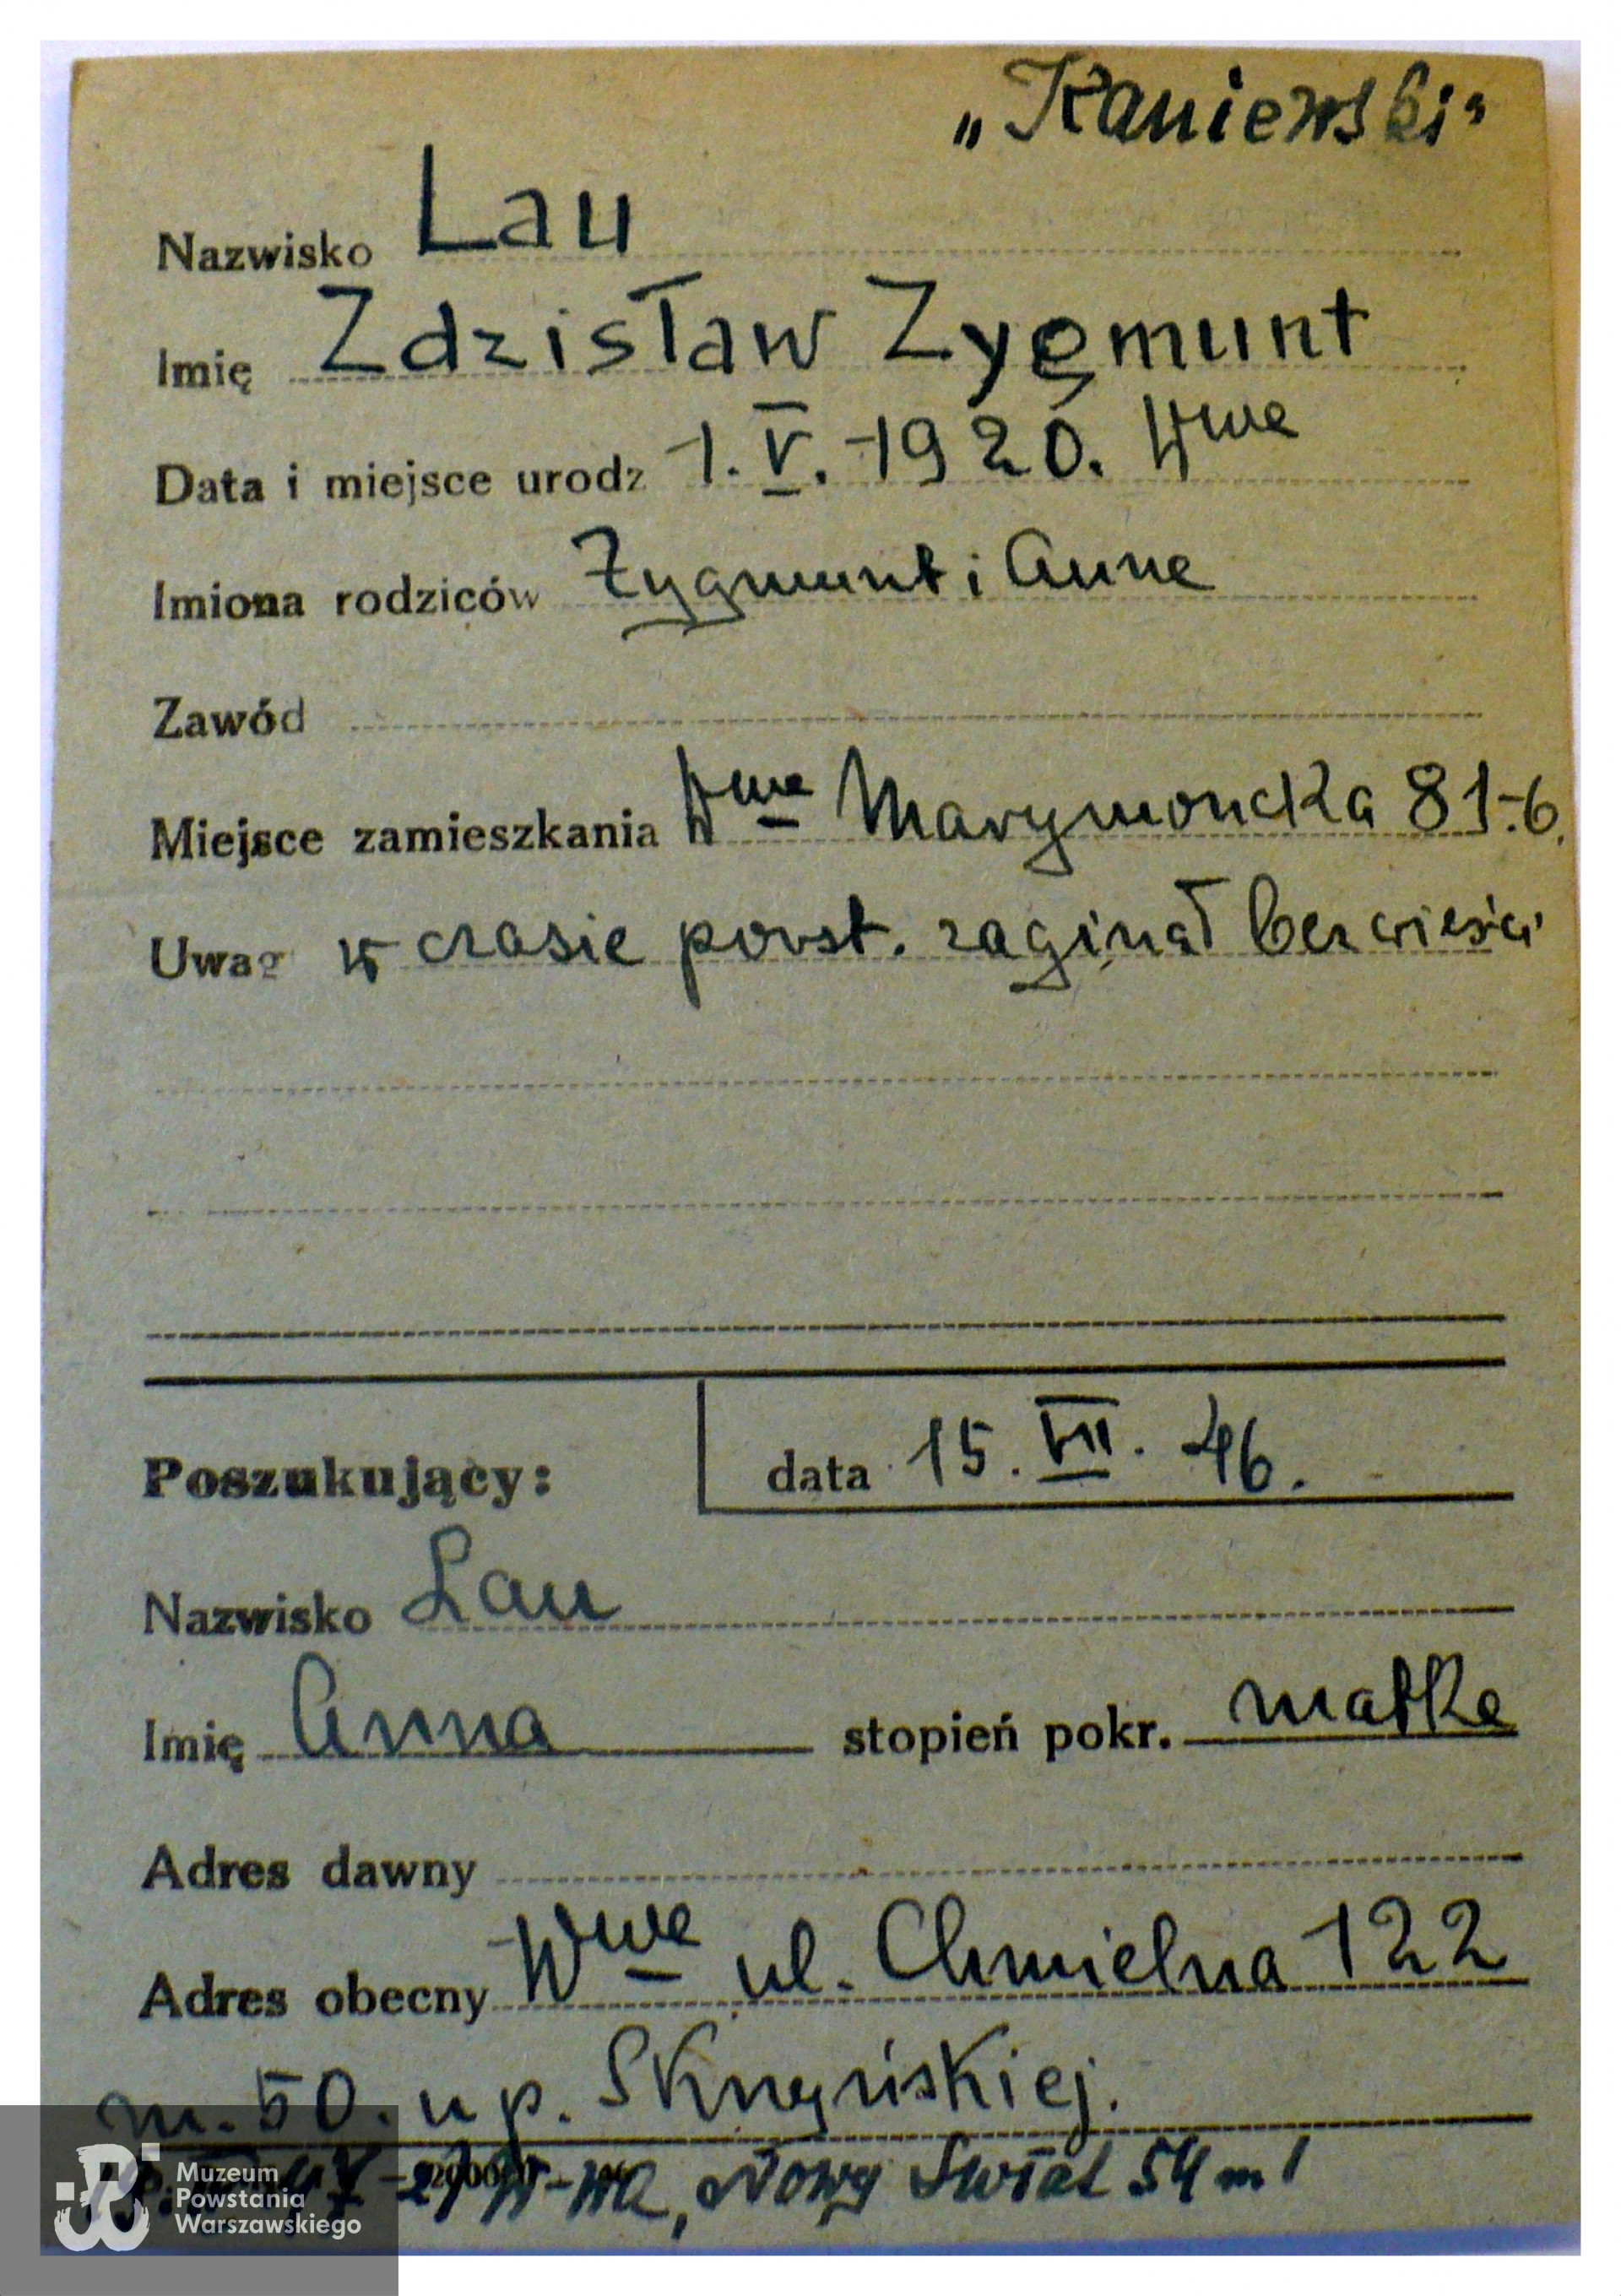 „Kaniewski”
Nazwisko Lau
Imię Zdzisław Zygmunt
Data i miejsce urodz 1.V.1920. Wwa
Imiona rodziców Zygmunt i Anna
Zawód
Miejsce zamieszkania Wwa Marymoncka 81-6.
Uwag w czasie powst. zaginął bez wieści
Poszukujący: data 15.VII.46.
Nazwisko Lau
Imię Anna stopień pokr. matka
Adres dawny
Adres obecny Wwa ul. Chmielna 122
m. 50. u p.
W-wa, Nowy Świat 54 m 1
Muzeum
Powstania
Warszawskiego